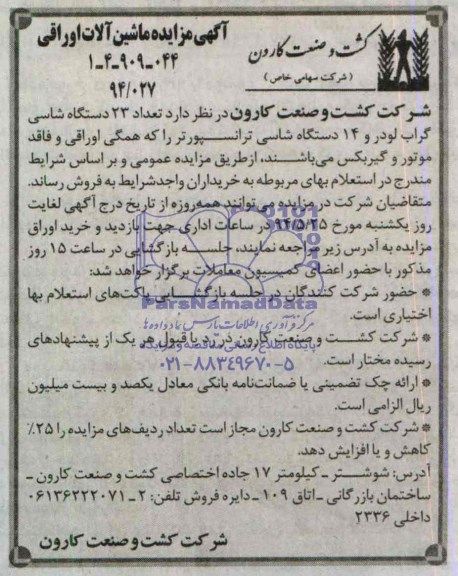 کشت و صنعت کارون
(شرکت سهامی خاص)
آگهی مزایده ماشین آلات اوراقی
۱-۴-۹۰۹-۰۴۴
۹۴/۰۲۷
شرکت کشت و صنعت کارون در نظر دارد تعداد ۲۳ دستگاه شاسی
گراب لودر و ۱۴ دستگاه شاسی ترانسپورتر را که همگی اوراقی و فاقد
موتور و گیربکس می‌باشند، ازطریق مزایده عمومی و بر اساس شرایط
مندرج در استعلام بهای مربوطه به خریداران واجدشرایط به فروش رساند.
متقاضیان شرکت در مزایده می‌توانند همه‌روزه از تاریخ درج آگهی لغایت
روز یکشنبه مورخ ۹۴/۵/۲۵ در ساعات اداری جهت بازدید و خرید اوراق
مزایده به آدرس زیر مراجعه نمایند، جلسه بازگشایی در ساعت ۱۵ روز
مذکور با حضور اعضای کمیسیون معاملات برگزار خواهد شد:
* حضور شرکت کنندگان در جلسه بازگشایی پاکت‌های استعلام بها
اختیاری است.
* شرکت کشت و صنعت کارون در رد یا قبول هر یک از پیشنهادهای
رسیده مختار است.
* ارائه چک تضمینی یا ضمانت‌نامه بانکی معادل یکصد و بیست میلیون
ریال الزامی است.
* شرکت کشت و صنعت کارون مجاز است تعداد ردیف‌های مزایده را ۲۵٪
کاهش و یا افزایش دهد.
آدرس: شوشتر ـ کیلومتر ۱۷ جاده اختصاصی کشت و صنعت کارون ـ
ساختمان بازرگانی ـ اتاق ۱۰۹ ـ دایره فروش تلفن: ۲ ـ ۰۶۱۳۶۲۲۲۰۷۱
داخلی ۲۳۳۶
شرکت کشت و صنعت کارون
ParsNamadData
مرکز فرآوری اطلاعات پارس نماد داده ها
پایگاه اطلاع رسانی مناقصه و مزایده
۰۲۱-۸۸۳۴۹۶۷۰-۵